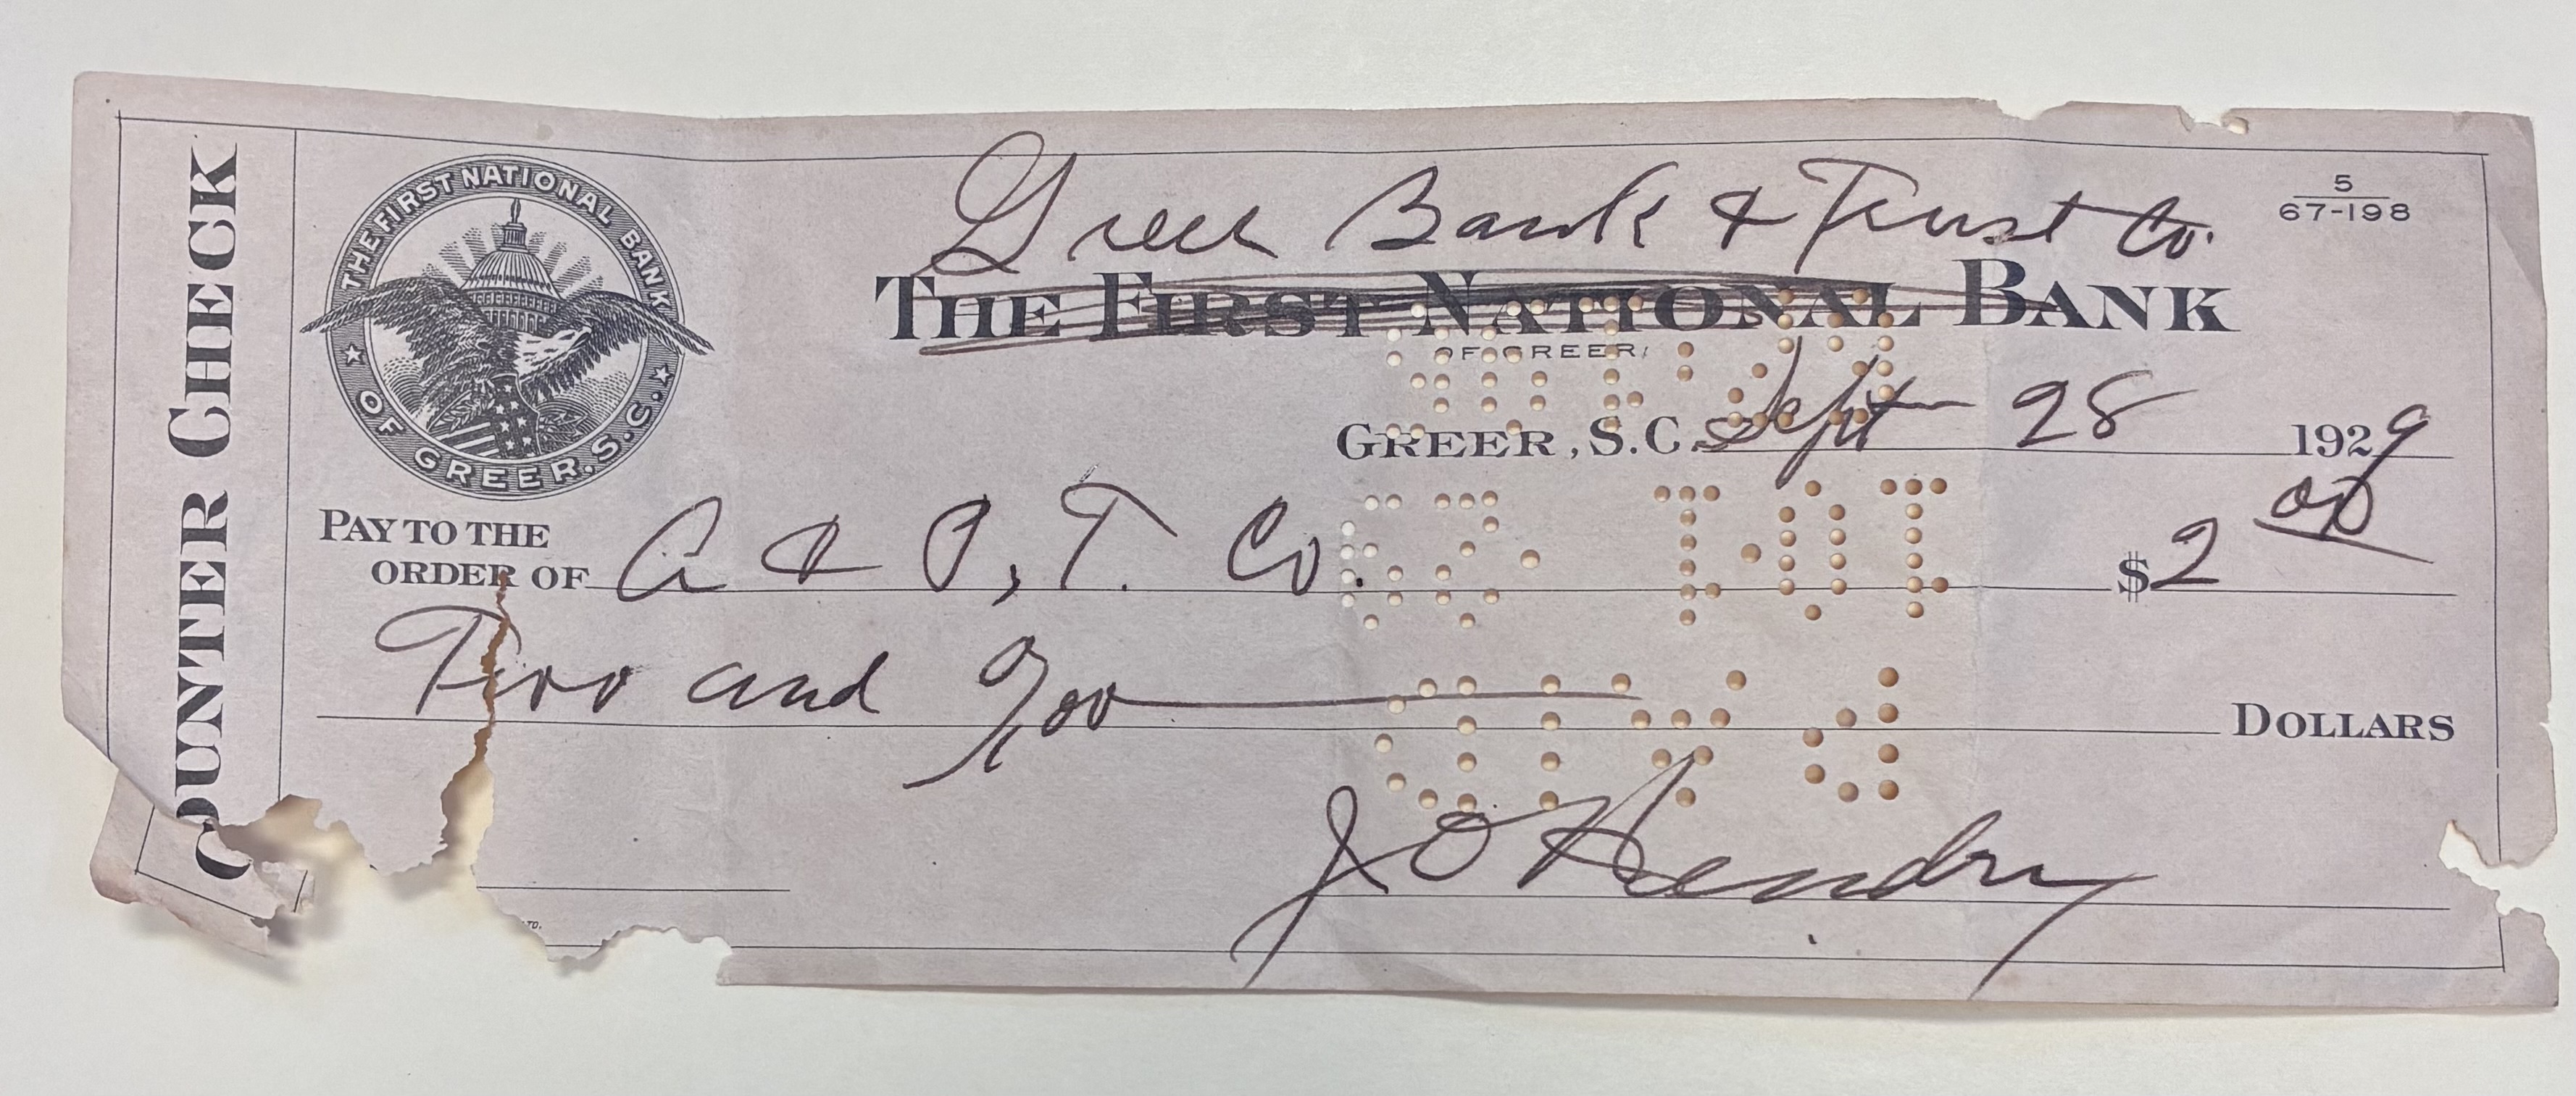 COUNTER CHECK
THE FIRST NATIONAL BANK
OF GREER, S.C.
Greer Bank & Trust Co.
5
67-198
THE FIRST NATIONAL BANK
OF GREER
GREER, S.C. Sept 28 1929
PAY TO THE
ORDER OF A & P, T. Co. $2 00
Two and no/00 DOLLARS
J O Hendry
TD.
PAID